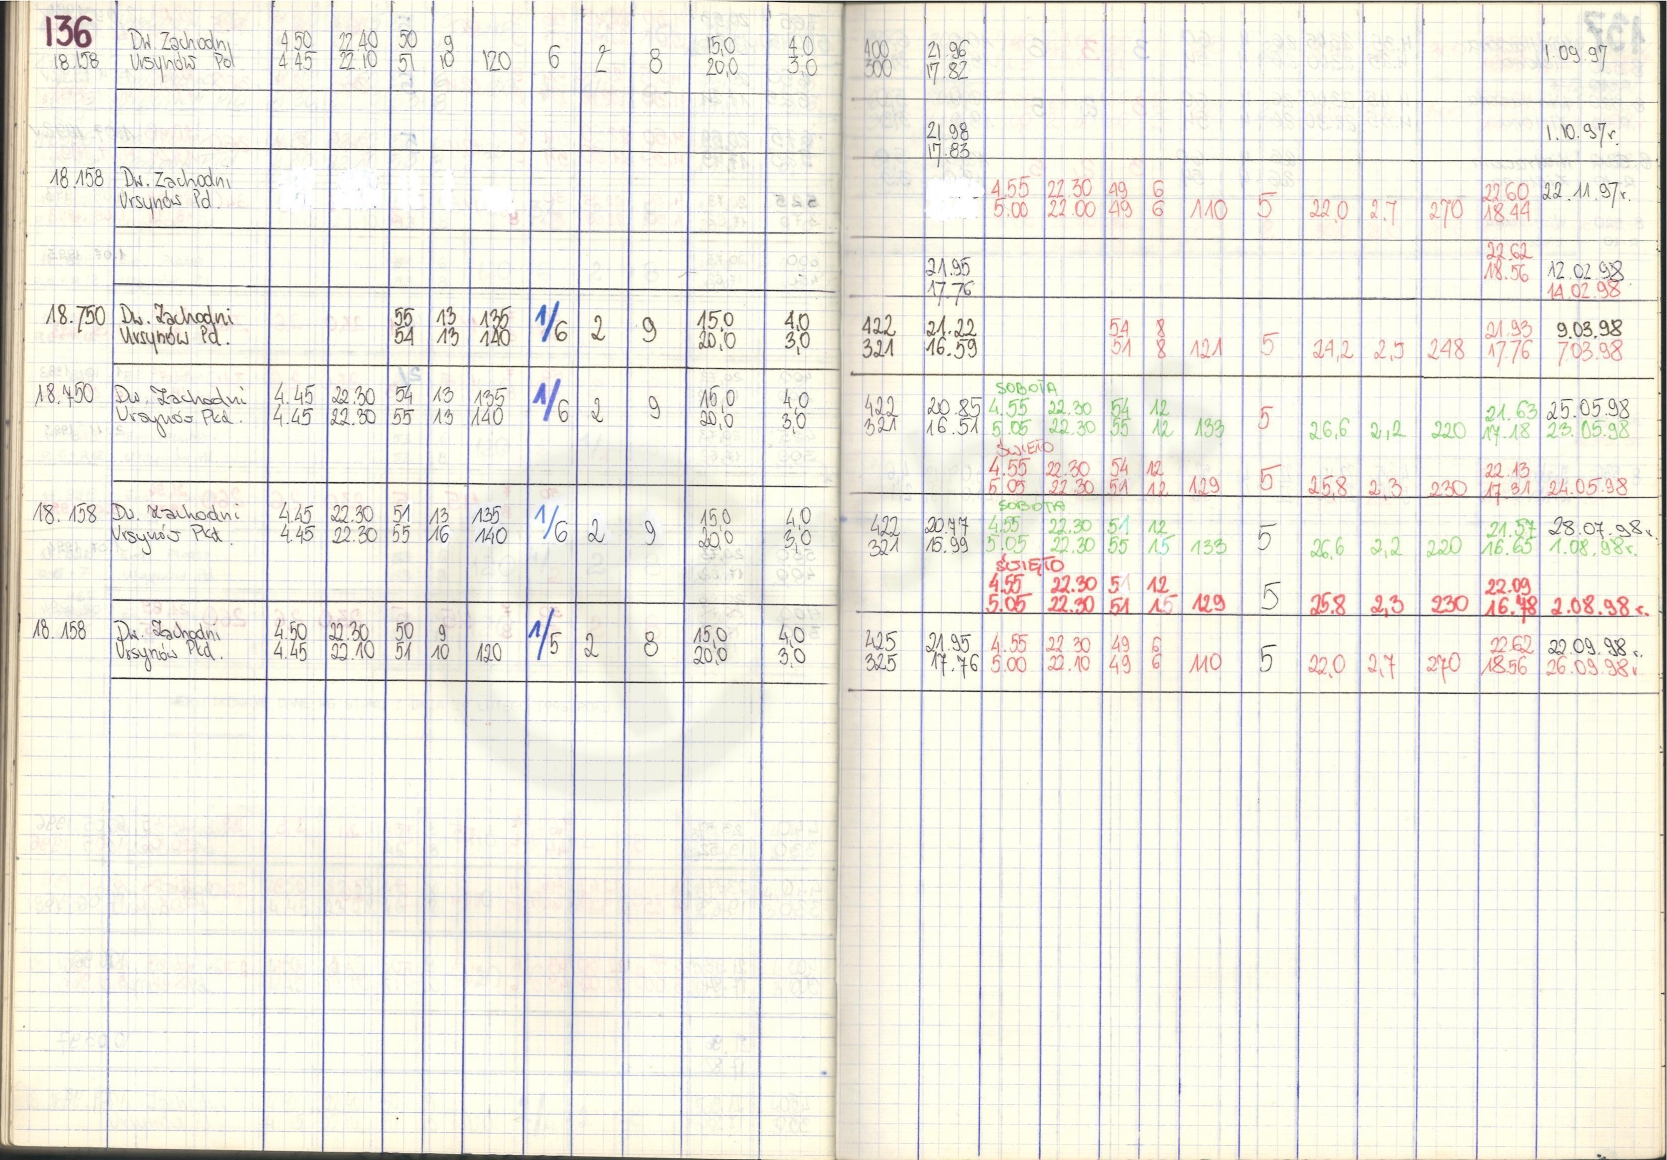 136
Dw. Zachodni 4.50 22.40 50 9 15,0 4,0 400 21.96
18.158 Ursynów Pd. 4.45 22.10 51 10 120 6 2 8 20,0 3,0 300 17.82 1.09.97
21.98
17.83 1.10.97r.
18.158 Dw. Zachodni 4.55 22.30 49 6 22.60 22.11.97r.
Ursynów Pd. 5.00 22.00 49 6 110 5 22,0 2,7 270 18.44
22.62
21.95 18.56 12.02.98
17.76 14.02.98
18.750 Dw. Zachodni 55 13 135 1/6 2 9 15,0 4,0 422 21.22 54 8 21.93 9.03.98
Ursynów Pd. 54 13 140 20,0 3,0 321 16.59 51 8 121 5 24,2 2,5 248 17.76 7.03.98
SOBOTA
18.750 Dw. Zachodni 4.45 22.30 54 13 135 1/6 2 9 15,0 4,0 422 20.85 4.55 22.30 54 12 5 21.63 25.05.98
Ursynów Płd. 4.45 22.30 55 13 140 20,0 3,0 321 16.51 5.05 22.30 55 12 133 26,6 2,2 220 17.18 23.05.98
ŚWIĘTO
4.55 22.30 54 12 22.13
5.05 22.30 51 12 129 5 25,8 2,3 230 17.31 24.05.98
SOBOTA
18.158 Dw. Zachodni 4.45 22.30 51 13 135 1/6 2 9 15,0 4,0 422 20.77 4.55 22.30 51 12 21.57 28.07.98r.
Ursynów Płd. 4.45 22.30 55 16 140 20,0 3,0 321 15.99 5.05 22.30 55 15 133 5 26,6 2,2 220 16.65 1.08.98r.
ŚWIĘTO
4.55 22.30 51 12 22.09
5.05 22.30 51 15 129 5 25.8 2,3 230 16.78 2.08.98r.
18.158 Dw. Zachodni 4.50 22.30 50 9 1/5 2 8 15,0 4,0 425 21.95 4.55 22.30 49 6 22.62 22.09.98r.
Ursynów Płd. 4.45 22.10 51 10 120 20,0 3,0 325 17.76 5.00 22.10 49 6 110 5 22,0 2,7 270 18.56 26.09.98r.